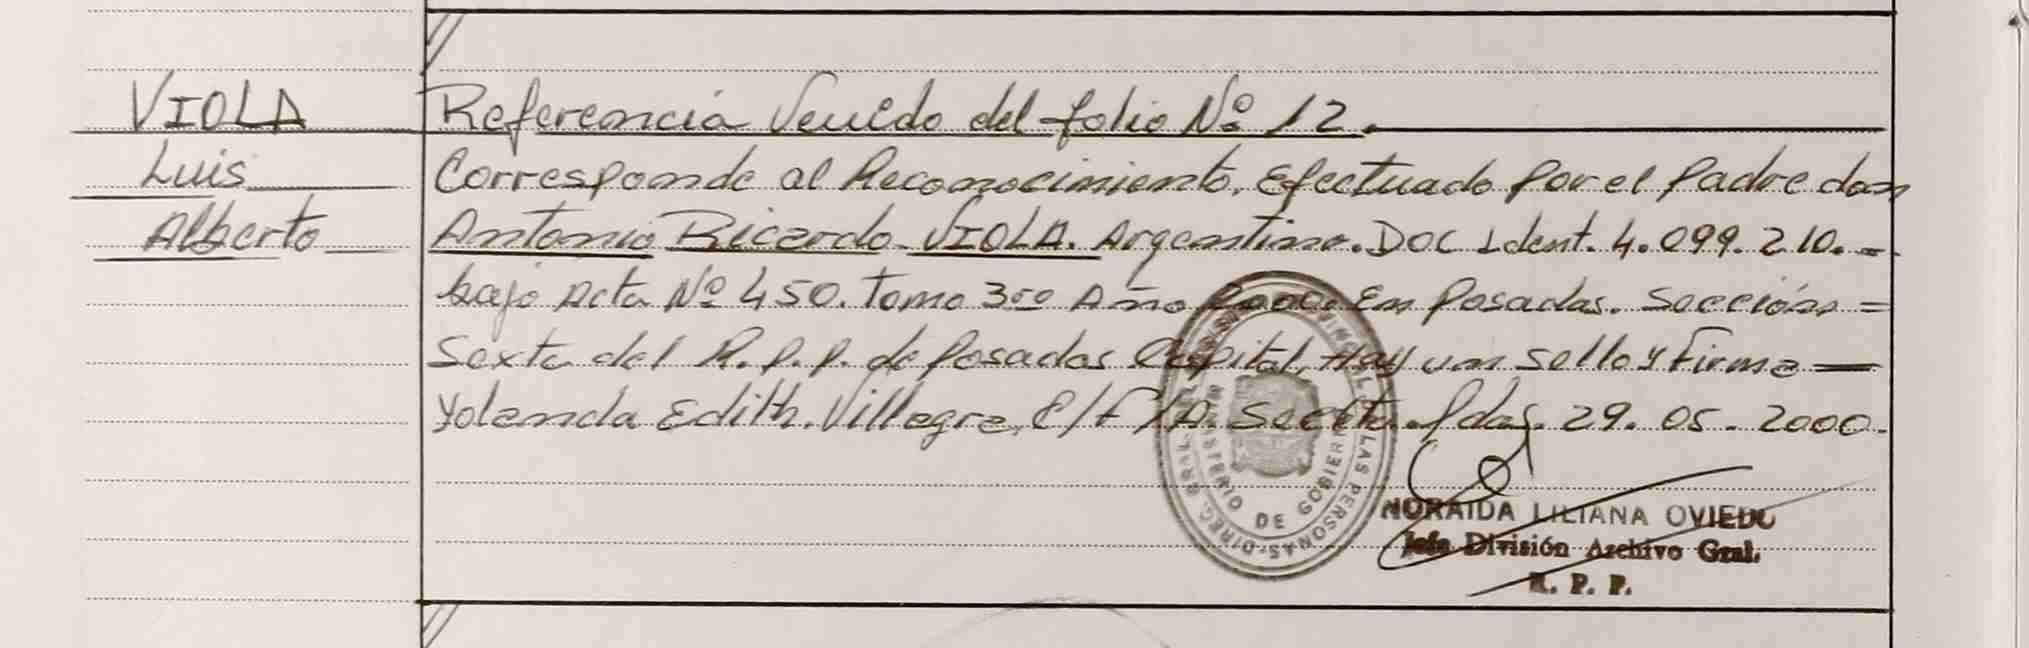 VIOLA
Luis
Alberto
Referencia Venido del folio Nº 12.
Corresponde al Reconocimiento. Efectuado por el padre don
Antonio Ricardo VIOLA. Argentino. DOC Ident. 4.099.210.-
bajo Acta Nº 450. Tomo 3ro Año 2000. En Posadas. Sección =
Sexta del R.P.P. de Posadas Capital, Hay un sello y Firma —
Yolanda Edith. Villagra. E/F/A. Pdas. 29. 05. 2000.
MINISTERIO DE GOBIERNO
LAS PERSONAS
NORAIDA LILIANA OVIEDO
Jefe División Archivo Gral.
R. P. P.